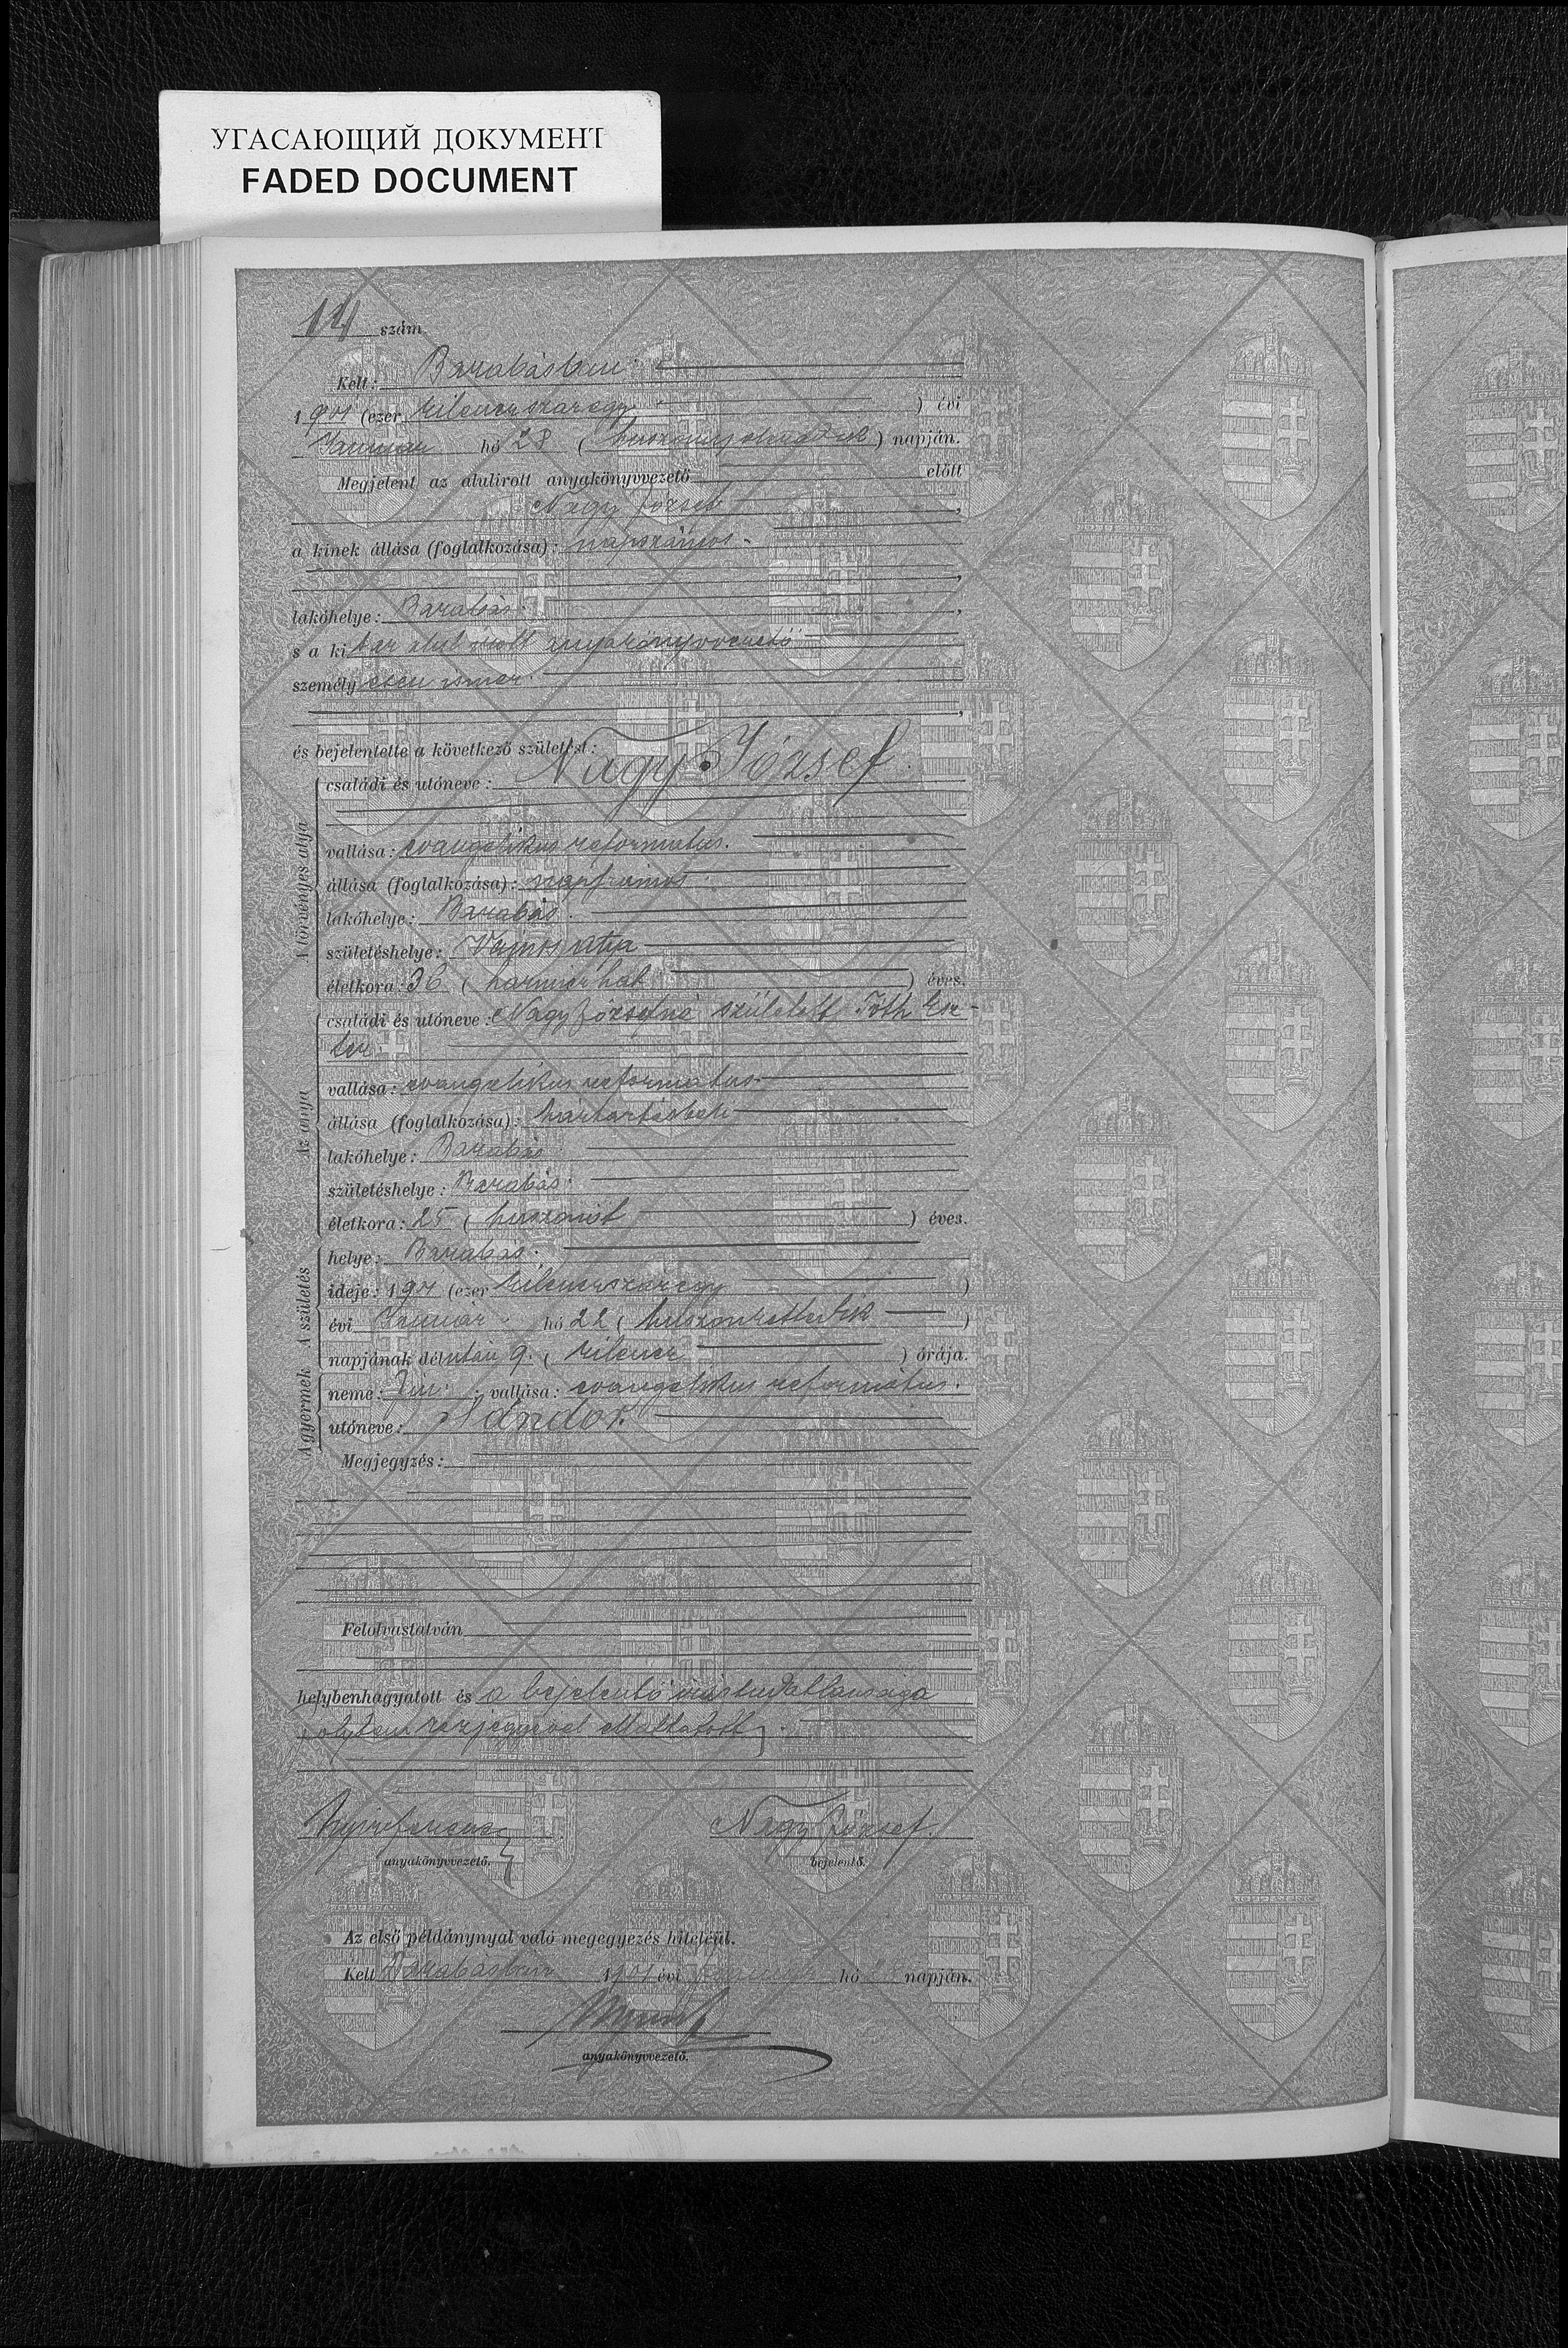 УГАСАЮЩИЙ ДОКУМЕНТ
FADED DOCUMENT
14 szám.
Kelt: Barabásban
1901 (ezer kilencszázegy) évi
Január hó 28 (huszonnyolcadik) napján.
Megjelent az alulirott anyakönyvvezető előtt
Nagy József,
a kinek állása (foglalkozása): napszámos
lakóhelye: Barabás,
s a ki az alul irott anyakönyvvezető
személyesen ismer
és bejelentette a következő születést:
A törvényes atyja
családi és utóneve: Nagy József
vallása: evangelikus református.
állása (foglalkozása): napszámos
lakóhelye: Barabás.
születéshelye: Vámosatya
életkora: 36 (harminchat) éves.
Az anya
családi és utóneve: Nagy Józsefné született Tóth Esz-
ter
vallása: evangelikus református
állása (foglalkozása): háztartásbeli
lakóhelye: Barabás
születéshelye: Barabás.
életkora: 25 (huszonöt) éves.
A születés
helye: Barabás.
ideje: 1901 (ezer kilencszázegy)
évi Január hó 22 (huszonkettedik)
napjának délután 9. (kilenc) órája.
A gyermek
neme: fiú; vallása: evangelikus református.
utóneve: Sándor.
Megjegyzés:
Felolvastatván
helybenhagyatott és a bejelentő írástudatlansága
folytán kézjegyével elláttatott.
anyakönyvvezető.
Nagy József.
bejelentő.
Az első példánynyal való megegyezés hiteléül.
Kelt Barabásban 1901 évi január hó 28 napján.
anyakönyvvezető.